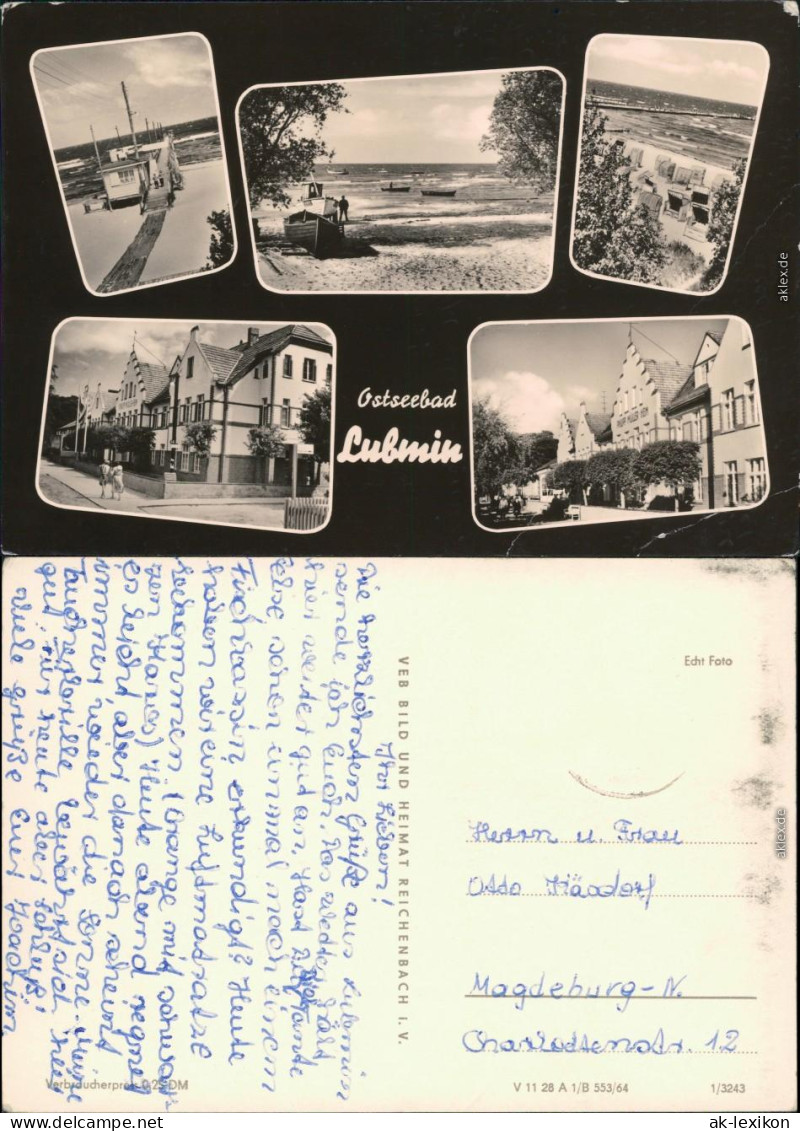 Ostseebad
Lubmin
aklex.de
Ihr Lieben!
die herzlichsten Grüße aus Lubmin
sende ich Euch. Das Wetter hält
hier weiter gut an. Hast
Else schon einmal nach einem
erkundigt? Heute
haben wir eine Luftmatratze
bekommen (Orange mit
) Heute abend regnet
es leicht, aber danach scheint
immer wieder die Sonne. Meine
Taucherbrille bewährt sich hier
gut. Für heute aber Schluß!
Viele Grüße Euer Joachim
VEB BILD UND HEIMAT REICHENBACH I. V.
Echt Foto
Herrn u. Frau
Otto
Magdeburg-N.
Charlottenstr. 12
Verbraucherpreis 0,25 DM
V 11 28 A 1/B 553/64
1/3243
aklex.de
ak-lexikon
ak-lexikon.com